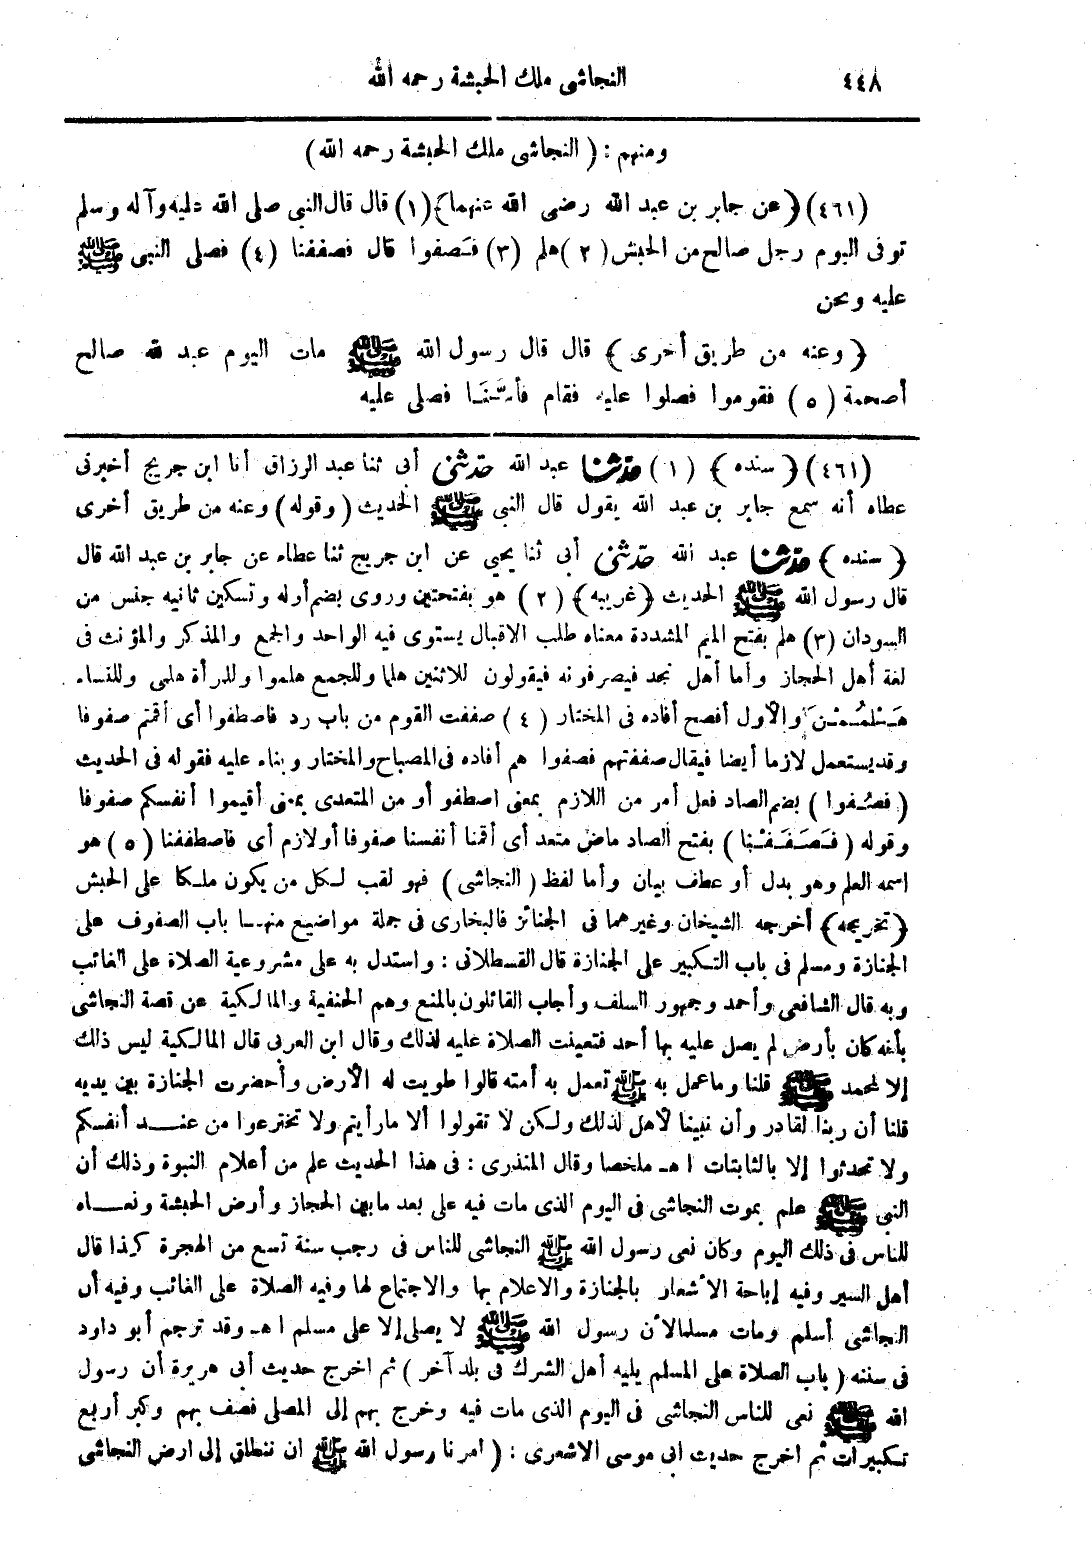 ٤٤٨ النجاشى ملك الحبشة رحمه الله
ومنهم : ( النجاشى ملك الحبشة رحمه الله )
(٤٦١) ﴿ عن جابر بن عبد الله رضى الله عنهما ﴾ (١) قال قال النبي صلى الله عليه وآله وسلم
توفى اليوم رجل صالح من الحبش (٢) هلم (٣) فَصفوا قال فصففنا (٤) فصلى النبى ﷺ
عليه ونحن
﴿ وعنه من طريق أخرى ﴾ قال قال رسول الله ﷺ مات اليوم عبد لله صالح
أصحمة (٥) فقوموا فصلوا عليه فقام فأمَّنَا فصلى عليه
(٤٦١) ﴿ سنده ﴾ (١) حدثنا عبد الله حدثنى أبى ثنا عبد الرزاق أنا ابن جريج أخبرنى
عطاء أنه سمع جابر بن عبد الله يقول قال النبى ﷺ الحديث ( وقوله ) وعنه من طريق أخرى
﴿ سنده ﴾ حدثنا عبد الله حدثنى أبى ثنا يحيي عن ابن جريج ثنا عطاء عن جابر بن عبد الله قال
قال رسول الله ﷺ الحديث ﴿ غريبه ﴾ (٢) هو بفتحتين وروى بضم أوله وتسكين ثانيه جنس من
السودان (٣) هلم بفتح الميم المشددة معناه طلب الاقبال يستوى فيه الواحد والجمع والمذكر والمؤنث فى
لغة أهل الحجاز وأما أهل نجد فيصرفونه فيقولون للاثنين هلما وللجمع هلموا وللمرأة هلمى وللنساء
هَلْمُمْنَ والأول أفصح أفاده فى المختار (٤) صففت القوم من باب رد فاصطفوا أى أقمتم صفوفا
وقد يستعمل لازما أيضا فيقال صففتهم فصفوا هم أفاده فى المصباح والمختار وبناء عليه فقوله فى الحديث
( فصُفوا ) بضم الصاد فعل أمر من اللازم بمعنى اصطفو أو من المتعدى بمعنى أقيموا أنفسكم صفوفا
وقوله ( فَصَفَفْنا ) بفتح الصاد ماض متعد أى أقمنا أنفسنا صفوفا أو لازم أى فاصطففنا (٥) هو
اسمه العلم وهو بدل أو عطف بيان وأما لفظ ( النجاشى ) فهو لقب لكل من يكون ملكا على الحبش
﴿ تخريجه ﴾ أخرجه الشيخان وغيرهما فى الجنائز فالبخارى فى جملة مواضيع منها باب الصفوف على
الجنازة ومسلم فى باب التكبير على الجنازة قال القسطلانى : واستدل به على مشروعية الصلاة على الغائب
وبه قال الشافعى وأحمد وجمهور السلف وأجاب القائلون بالمنع وهم الحنفية والمالكية عن قصة النجاشى
بأنه كان بأرض لم يصل عليه بها أحد فتعينت الصلاة عليه لذلك وقال ابن العربى قال المالكية ليس ذلك
إلا لمحمد ﷺ قلنا وما عمل به ﷺ تعمل به أمته قالوا طويت له الأرض وأحضرت الجنازة بين يديه
قلنا أن ربنا لقادر وأن نبينا لأهل لذلك ولكن لا تقولوا ألا ما رأيتم ولا تخترعوا من عند أنفسكم
ولا تحدثوا إلا بالثابتات ا هـ ملخصا وقال المنذرى : فى هذا الحديث علم من أعلام النبوة وذلك أن
النبى ﷺ علم بموت النجاشى فى اليوم الذى مات فيه على بعد ما بين الحجاز وأرض الحبشة ونعاه
للناس فى ذلك اليوم وكان نعى رسول الله ﷺ النجاشى للناس فى رجب سنة تسع من الهجرة كذا قال
أهل السير وفيه إباحة الأشعار بالجنازة والاعلام بها والاجتماع لها وفيه الصلاة على الغائب وفيه أن
النجاشى أسلم ومات مسلما لأن رسول الله ﷺ لا يصلى إلا على مسلم ا هـ وقد ترجم أبو داود
فى سننه ( باب الصلاة على المسلم يليه أهل الشرك فى بلد آخر ) ثم اخرج حديث أبى هريرة أن رسول
الله ﷺ نعى للناس النجاشى فى اليوم الذى مات فيه وخرج بهم إلى المصلى فصف بهم وكبر أربع
تكبيرات ثم اخرج حديث ابى موسى الاشعرى : ( امرنا رسول الله ﷺ ان ننطلق إلى ارض النجاشى